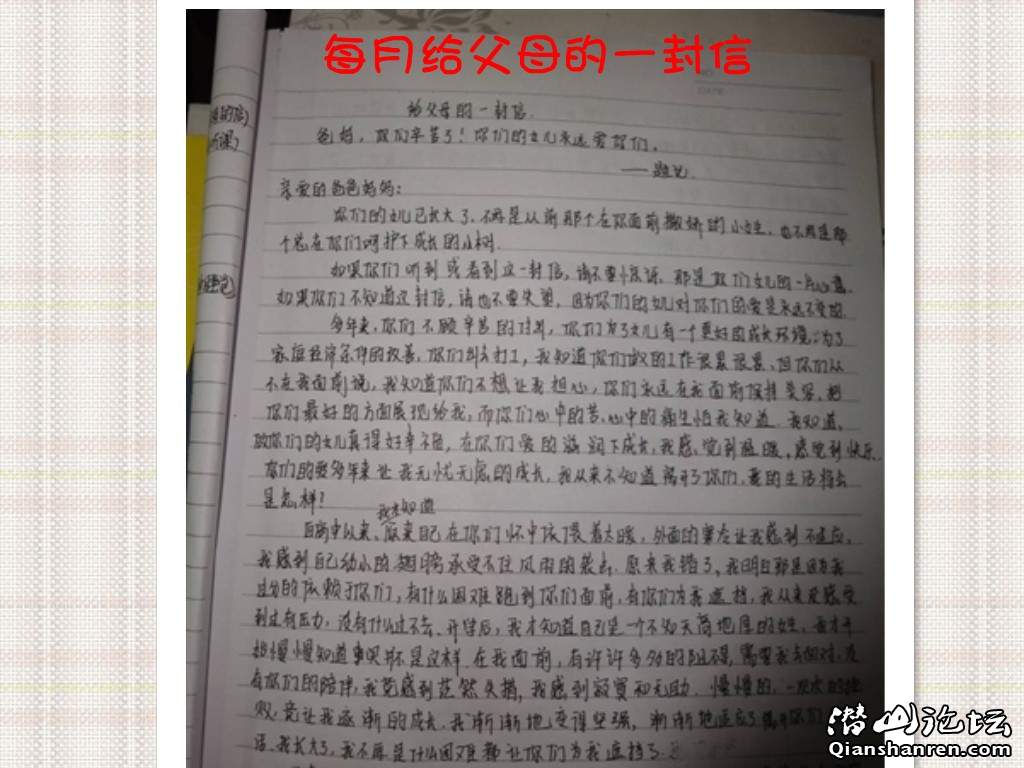 每月给父母的一封信
给父母的一封信.
爸妈，你们辛苦了！你们的女儿永远爱你们。
——题记
亲爱的爸爸妈妈：
你们的女儿已长大了，不再是从前那个在你面前撒娇的小女生，也不再是那
个总在你们呵护下成长的小树.
如果你们听到或看到这一封信，请不要惊讶，那是你们女儿的一片心意.
如果你们不知道这封信，请也不要失望，因为你们的女儿对你们的爱是永远不变的.
多年来，你们不顾辛苦的付出，你们为了女儿有一个更好的成长环境，为了
家庭经济条件的改善，你们外去打工，我知道你们做的工作很累很累，但你们从
不在我面前说，我知道你们不想让我担心，你们永远在我面前保持笑容，把
你们最好的方面展现给我，而你们心中的苦、心中的痛生怕我知道. 我知道，
做你们的女儿真得好幸福，在你们爱的滋润下成长，我感觉到温暖，感觉到快乐.
你们的爱多年来让我无忧无虑的成长，我从来不知道离开了你们，我的生活将会
是怎样？
我才知道
自高中以来，原来自己在你们怀中依偎着太暖，外面的寒冷让我感到不适应，
我感到自己幼小的翅膀承受不住风雨的袭击. 原来我错了，我明白那是因为我
过分的依赖于你们，有什么困难跑到你们面前，有你们为我遮挡，我从来没感受
到过有压力，没有什么过不去. 开学后，我才知道自己是一个不知天高地厚的
慢慢知道事实并不是这样，在我面前，有许许多多的阻碍，需要我去面对，没
有你们的陪伴，我觉感到茫然失措，我感到寂寞和无助. 慢慢的，一次次的挫
败，竟让我逐渐的成长，我渐渐地变得坚强，渐渐地适应了离开你们
活. 我长大了，我不再是什么困难都让你们为我遮挡了
潜山论坛
Qianshanren.com